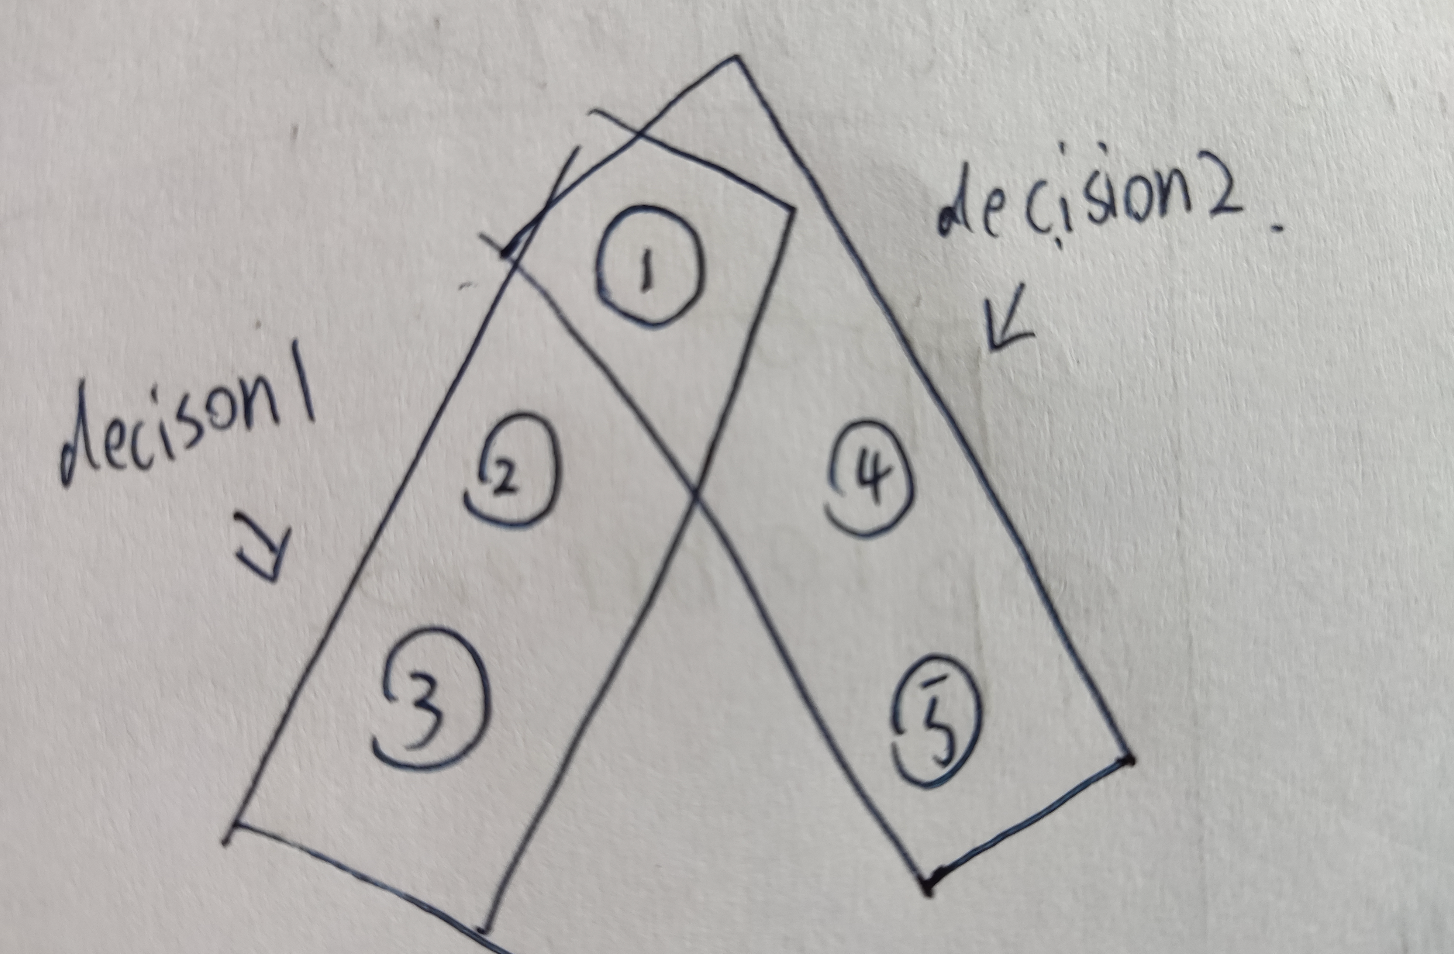 decision2.
①
decison1
②
④
③
⑤